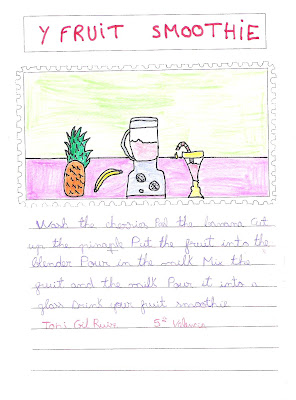 Y FRUIT SMOOTHIE
Wash the cherris Pel the banana Cut
up the pinaple Put the fruit into the
blender Pour in the milk Mix the
fruit and the milk Pour it into a
glass Drink your fruit smoothie
Toni Gil Ruiz 5º Valencia